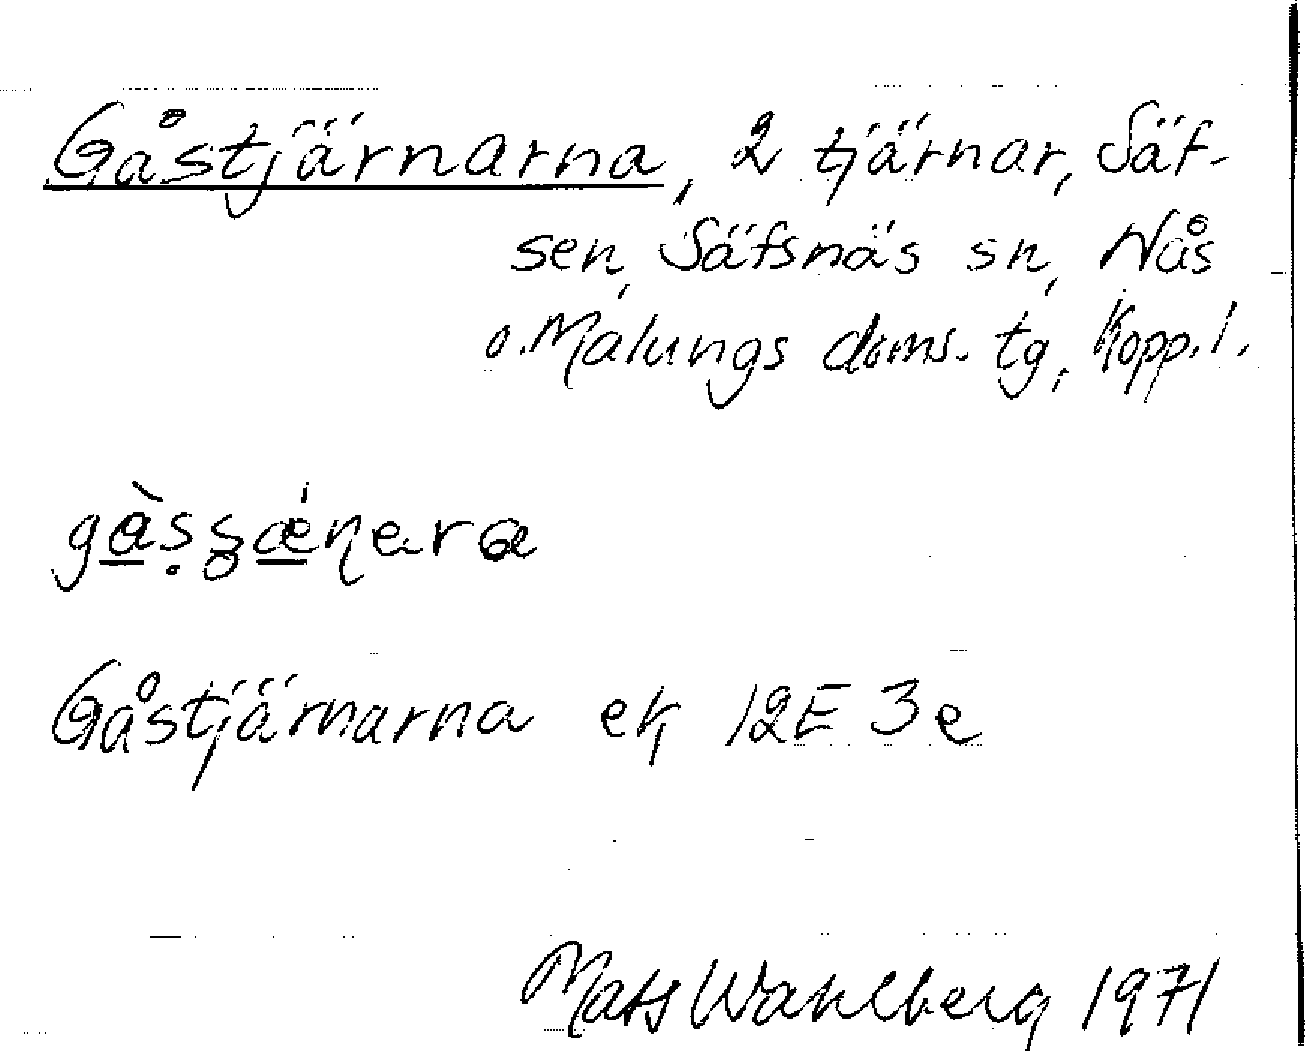 Gåstjärnarna, 2 tjärnar, Säf-
sen, Säfsnäs sn, Nås
o. Malungs doms. tg, Kopp. l.
Gåstjärnarna ek 12E 3e
Mats Wahlberg 1971